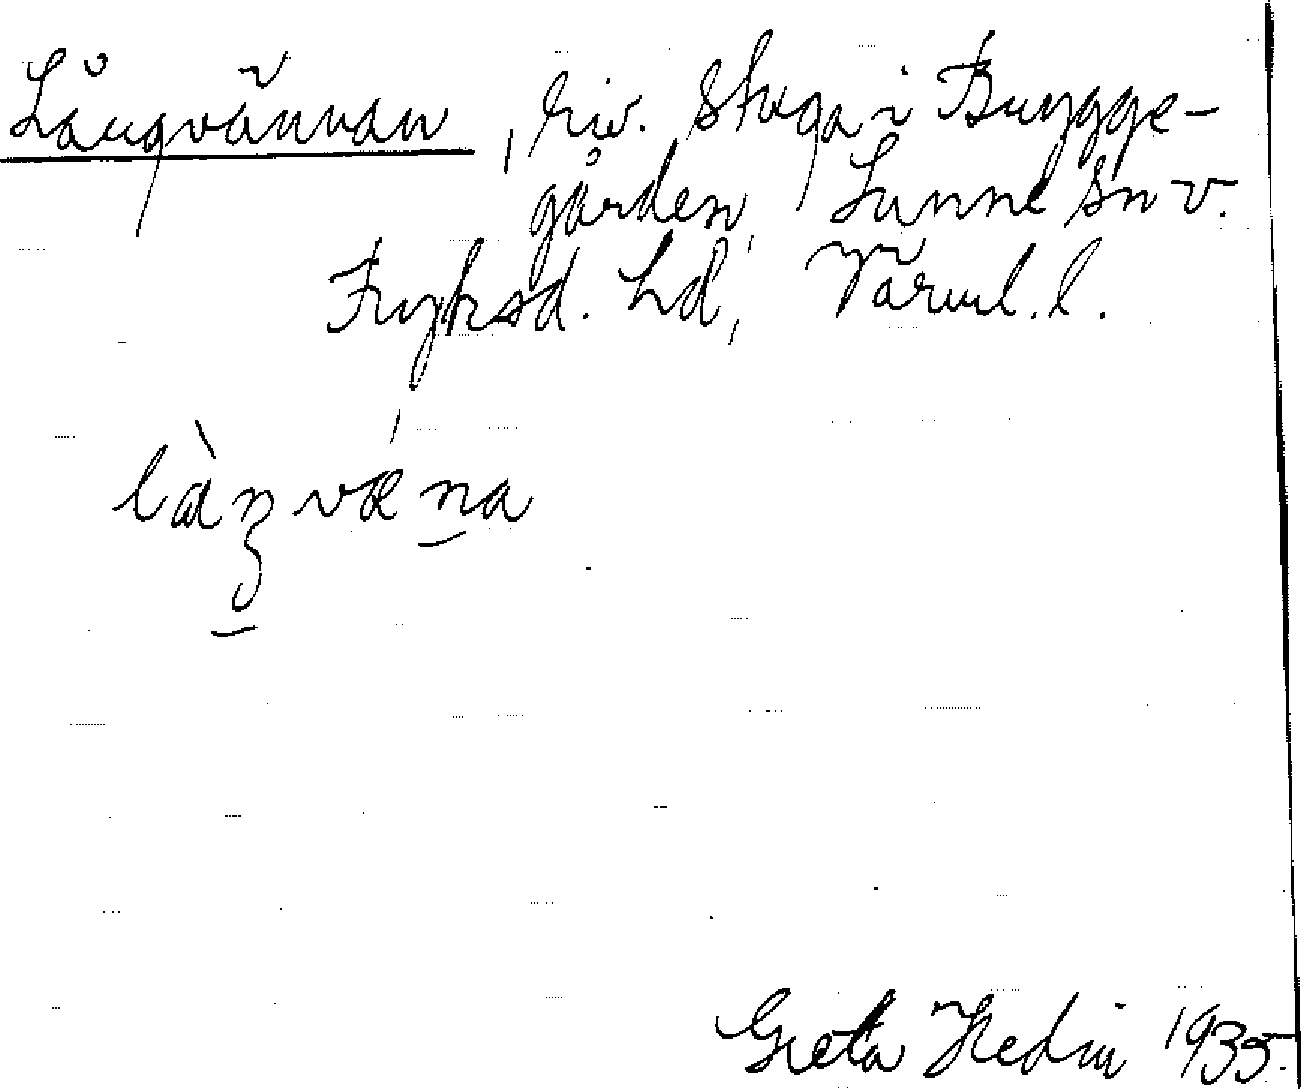 Långvännan, riv. stuga i Brygge-
gården, Sunne sn v.
Fryksd. hd, Värml. l.
làŋvǽna
Greta Hedin 1935.